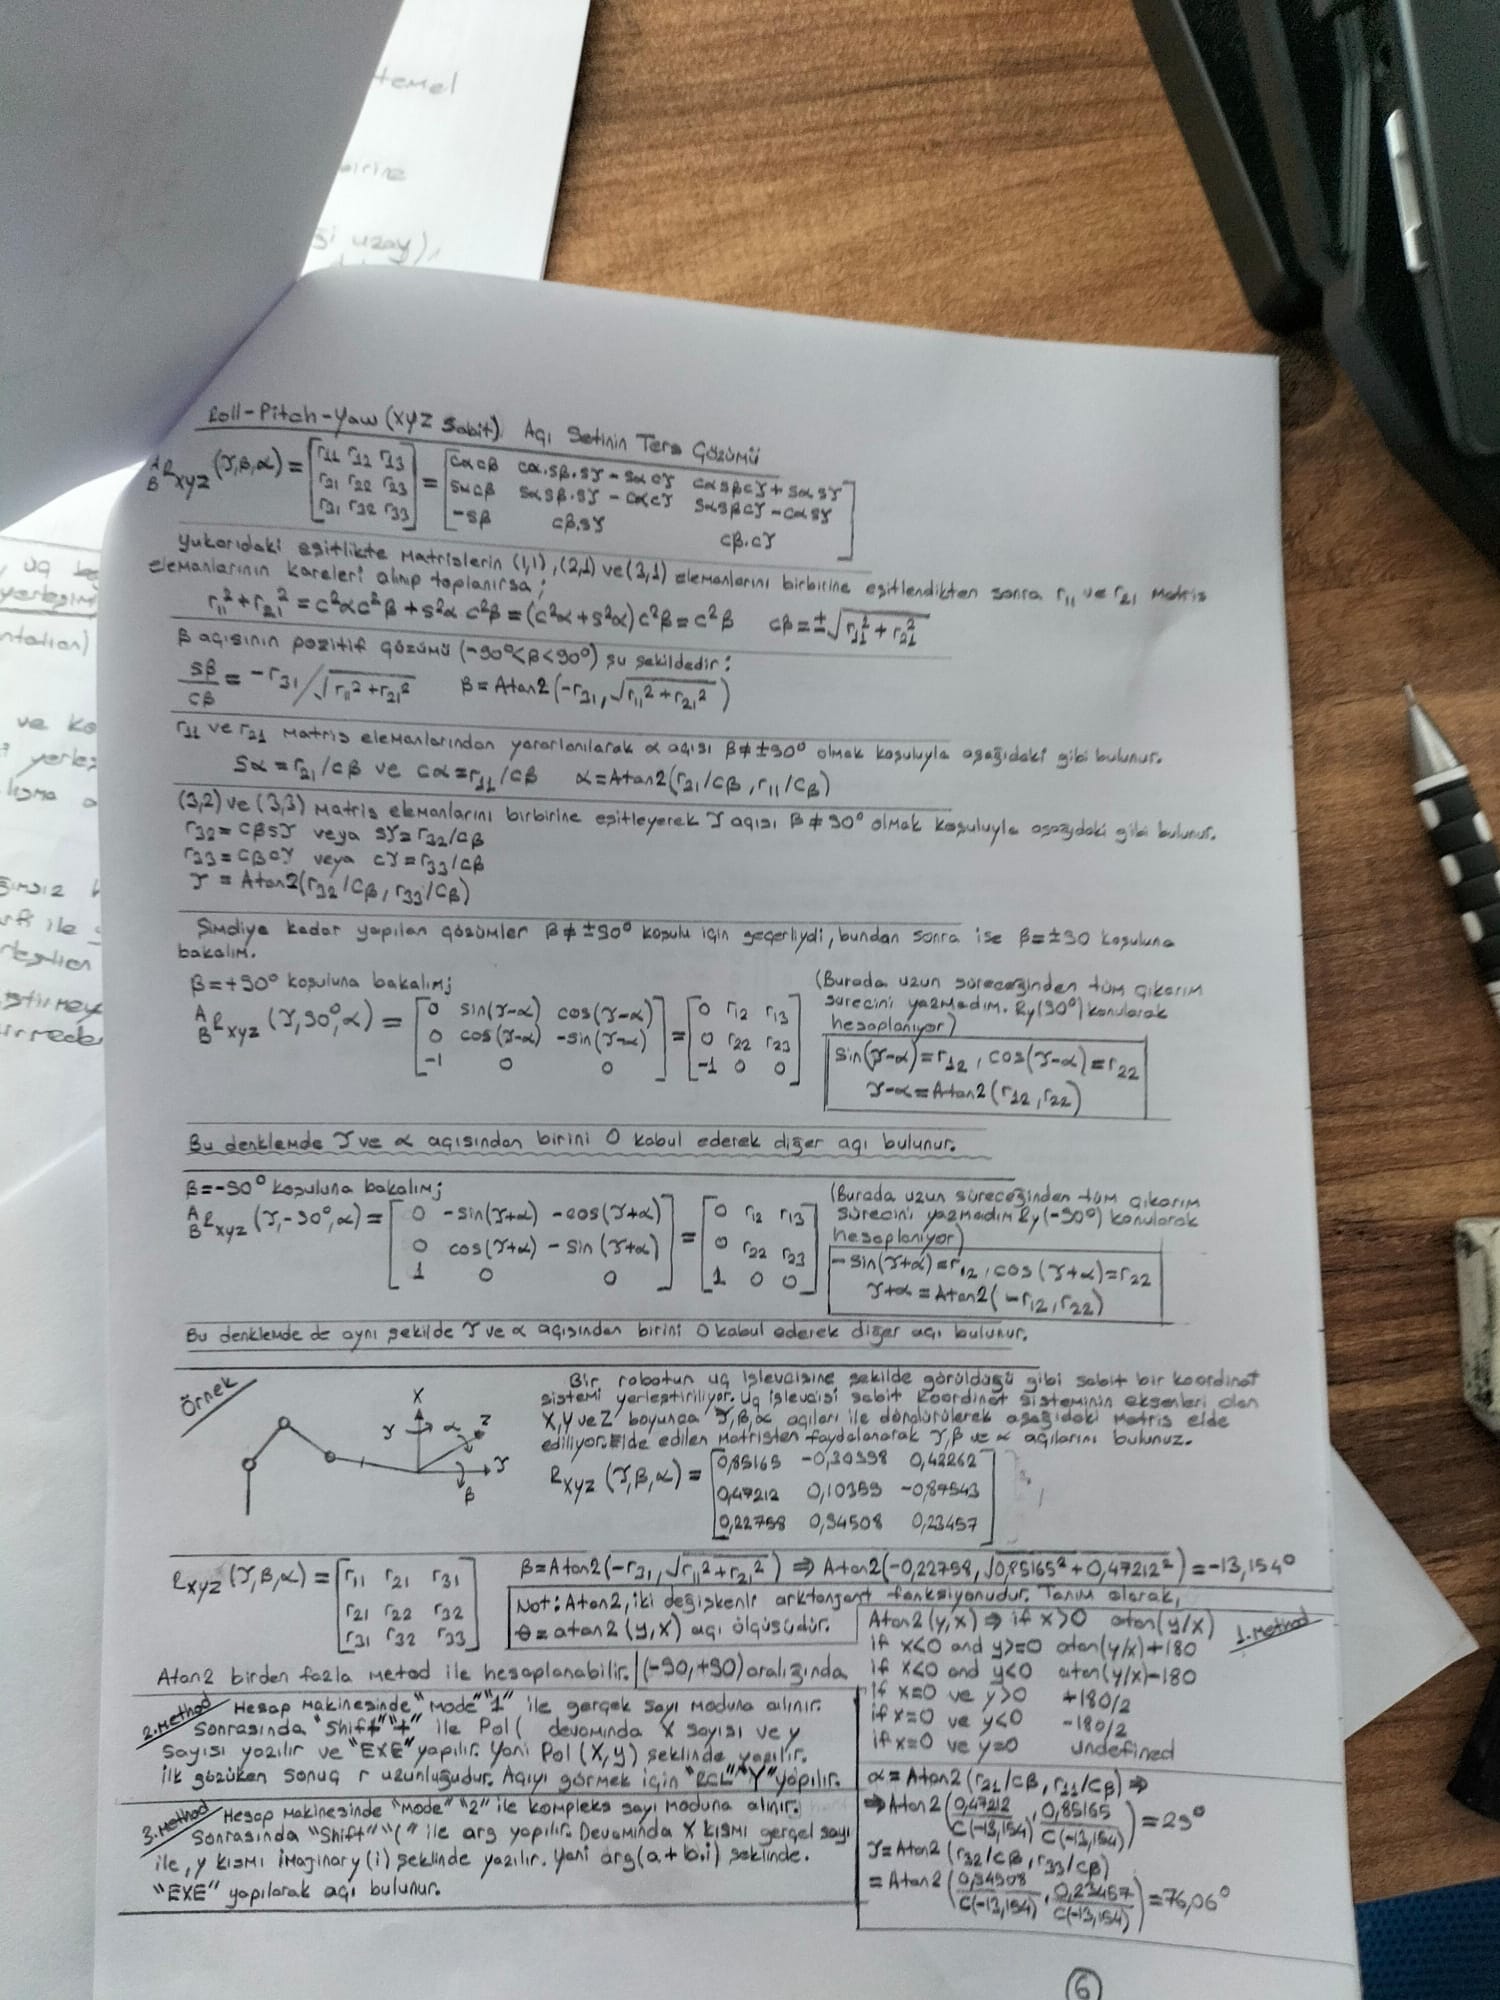 temel
birine
uzay),
Roll-Pitch-Yaw (XYZ Sabit) Açı Setinin Ters Çözümü
ᴬ_B R_XYZ (γ,β,α) = [r11 r12 r13; r21 r22 r23; r31 r32 r33] = [cαcβ cα.sβ.sγ-sαcγ cαsβcγ+sαsγ; sαcβ sαsβ.sγ-cαcγ sαsβcγ-cαsγ; -sβ cβ.sγ cβ.cγ]
Yukarıdaki eşitlikte matrislerin (1,1),(2,1) ve(3,1) elemanlarını birbirine eşitlendikten sonra r11 ve r21 matris
elemanlarının kareleri alınıp toplanırsa;
r11²+r21² = c²αc²β + s²α c²β = (c²α+s²α)c²β = c²β cβ = ±√(r11²+r21²)
β açısının pozitif çözümü (-90°<β<90°) şu şekildedir:
sβ/cβ = -r31/√(r11²+r21²) β = Atan2(-r31, √(r11²+r21²))
r11 ve r21 matris elemanlarından yararlanılarak α açısı β≠±90° olmak koşuluyla aşağıdaki gibi bulunur.
sα = r21/cβ ve cα = r11/cβ α = Atan2(r21/cβ, r11/cβ)
(3,2) ve (3,3) matris elemanlarını birbirine eşitleyerek γ açısı β≠90° olmak koşuluyla aşağıdaki gibi bulunur.
r32 = cβsγ veya sγ = r32/cβ
r33 = cβcγ veya cγ = r33/cβ
γ = Atan2(r32/cβ, r33/cβ)
Şimdiye kadar yapılan çözümler β≠±90° koşulu için geçerliydi, bundan sonra ise β=±90 koşuluna
bakalım.
β=+90° koşuluna bakalım;
ᴬ_B R_XYZ (γ,90°,α) = [0 sin(γ-α) cos(γ-α); 0 cos(γ-α) -sin(γ-α); -1 0 0] = [0 r12 r13; 0 r22 r23; -1 0 0]
(Burada uzun süreceğinden tüm çıkarım
sürecini yazmadım. Ry(90°) konularak
hesaplanıyor)
sin(γ-α) = r12, cos(γ-α) = r22
γ-α = Atan2(r12, r22)
Bu denklemde γ ve α açısından birini 0 kabul ederek diğer açı bulunur.
β=-90° koşuluna bakalım;
ᴬ_B R_XYZ (γ,-90°,α) = [0 -sin(γ+α) -cos(γ+α); 0 cos(γ+α) -sin(γ+α); 1 0 0] = [0 r12 r13; 0 r22 r23; 1 0 0]
(Burada uzun süreceğinden tüm çıkarım
sürecini yazmadım Ry(-90°) konularak
hesaplanıyor)
-sin(γ+α) = r12, cos(γ+α) = r22
γ+α = Atan2(-r12, r22)
Bu denklemde de aynı şekilde γ ve α açısından birini 0 kabul ederek diğer açı bulunur.
Örnek
X
γ α Z
Y
β
Bir robotun uç işlevcisine şekilde görüldüğü gibi sabit bir koordinat
sistemi yerleştiriliyor. Uç işlevcisi sabit koordinat sisteminin eksenleri olan
X,Y ve Z boyunca γ,β,α açıları ile döndürülerek aşağıdaki matris elde
ediliyor. Elde edilen matristen faydalanarak γ,β ve α açılarını bulunuz.
R_XYZ (γ,β,α) = [0,85165 -0,30998 0,42262; 0,47212 0,10399 -0,87543; 0,22758 0,94508 0,23457]
R_XYZ (γ,β,α) = [r11 r21 r31; r21 r22 r32; r31 r32 r33]
β = Atan2(-r31, √(r11²+r21²)) ⇒ Atan2(-0,22758, √(0,85165²+0,47212²)) = -13,154°
Not: Atan2, iki değişkenli arktanjant fonksiyonudur. Tanım olarak,
θ = atan2(y,x) açı ölçüsüdür.
1.Method
Atan2(y,x) ⇒ if x>0 atan(y/x)
if x<0 and y>=0 atan(y/x)+180
if x<0 and y<0 atan(y/x)-180
if x=0 ve y>0 +180/2
if x=0 ve y<0 -180/2
if x=0 ve y=0 undefined
Atan2 birden fazla metod ile hesaplanabilir. (-90,+90) aralığında
2.Method Hesap makinesinde "Mode" "1" ile gerçek sayı moduna alınır.
Sonrasında "Shift" "+" ile Pol( devamında X sayısı ve y
sayısı yazılır ve "EXE" yapılır. Yani Pol(X,y) şeklinde yazılır.
İlk gözüken sonuç r uzunluğudur. Açıyı görmek için "RCL" "Y" yapılır.
3.Method Hesap makinesinde "Mode" "2" ile kompleks sayı moduna alınır.
Sonrasında "Shift" "(" ile arg yapılır. Devamında X kısmı gerçel sayı
ile, y kısmı imaginary(i) şeklinde yazılır. Yani arg(a+b.i) şeklinde.
"EXE" yapılarak açı bulunur.
α = Atan2(r21/cβ, r11/cβ) ⇒
⇒ Atan2(0,47212/C(-13,154), 0,85165/C(-13,154)) = 29°
γ = Atan2(r32/cβ, r33/cβ)
= Atan2(0,94508/C(-13,154), 0,23457/C(-13,154)) = 76,06°
6